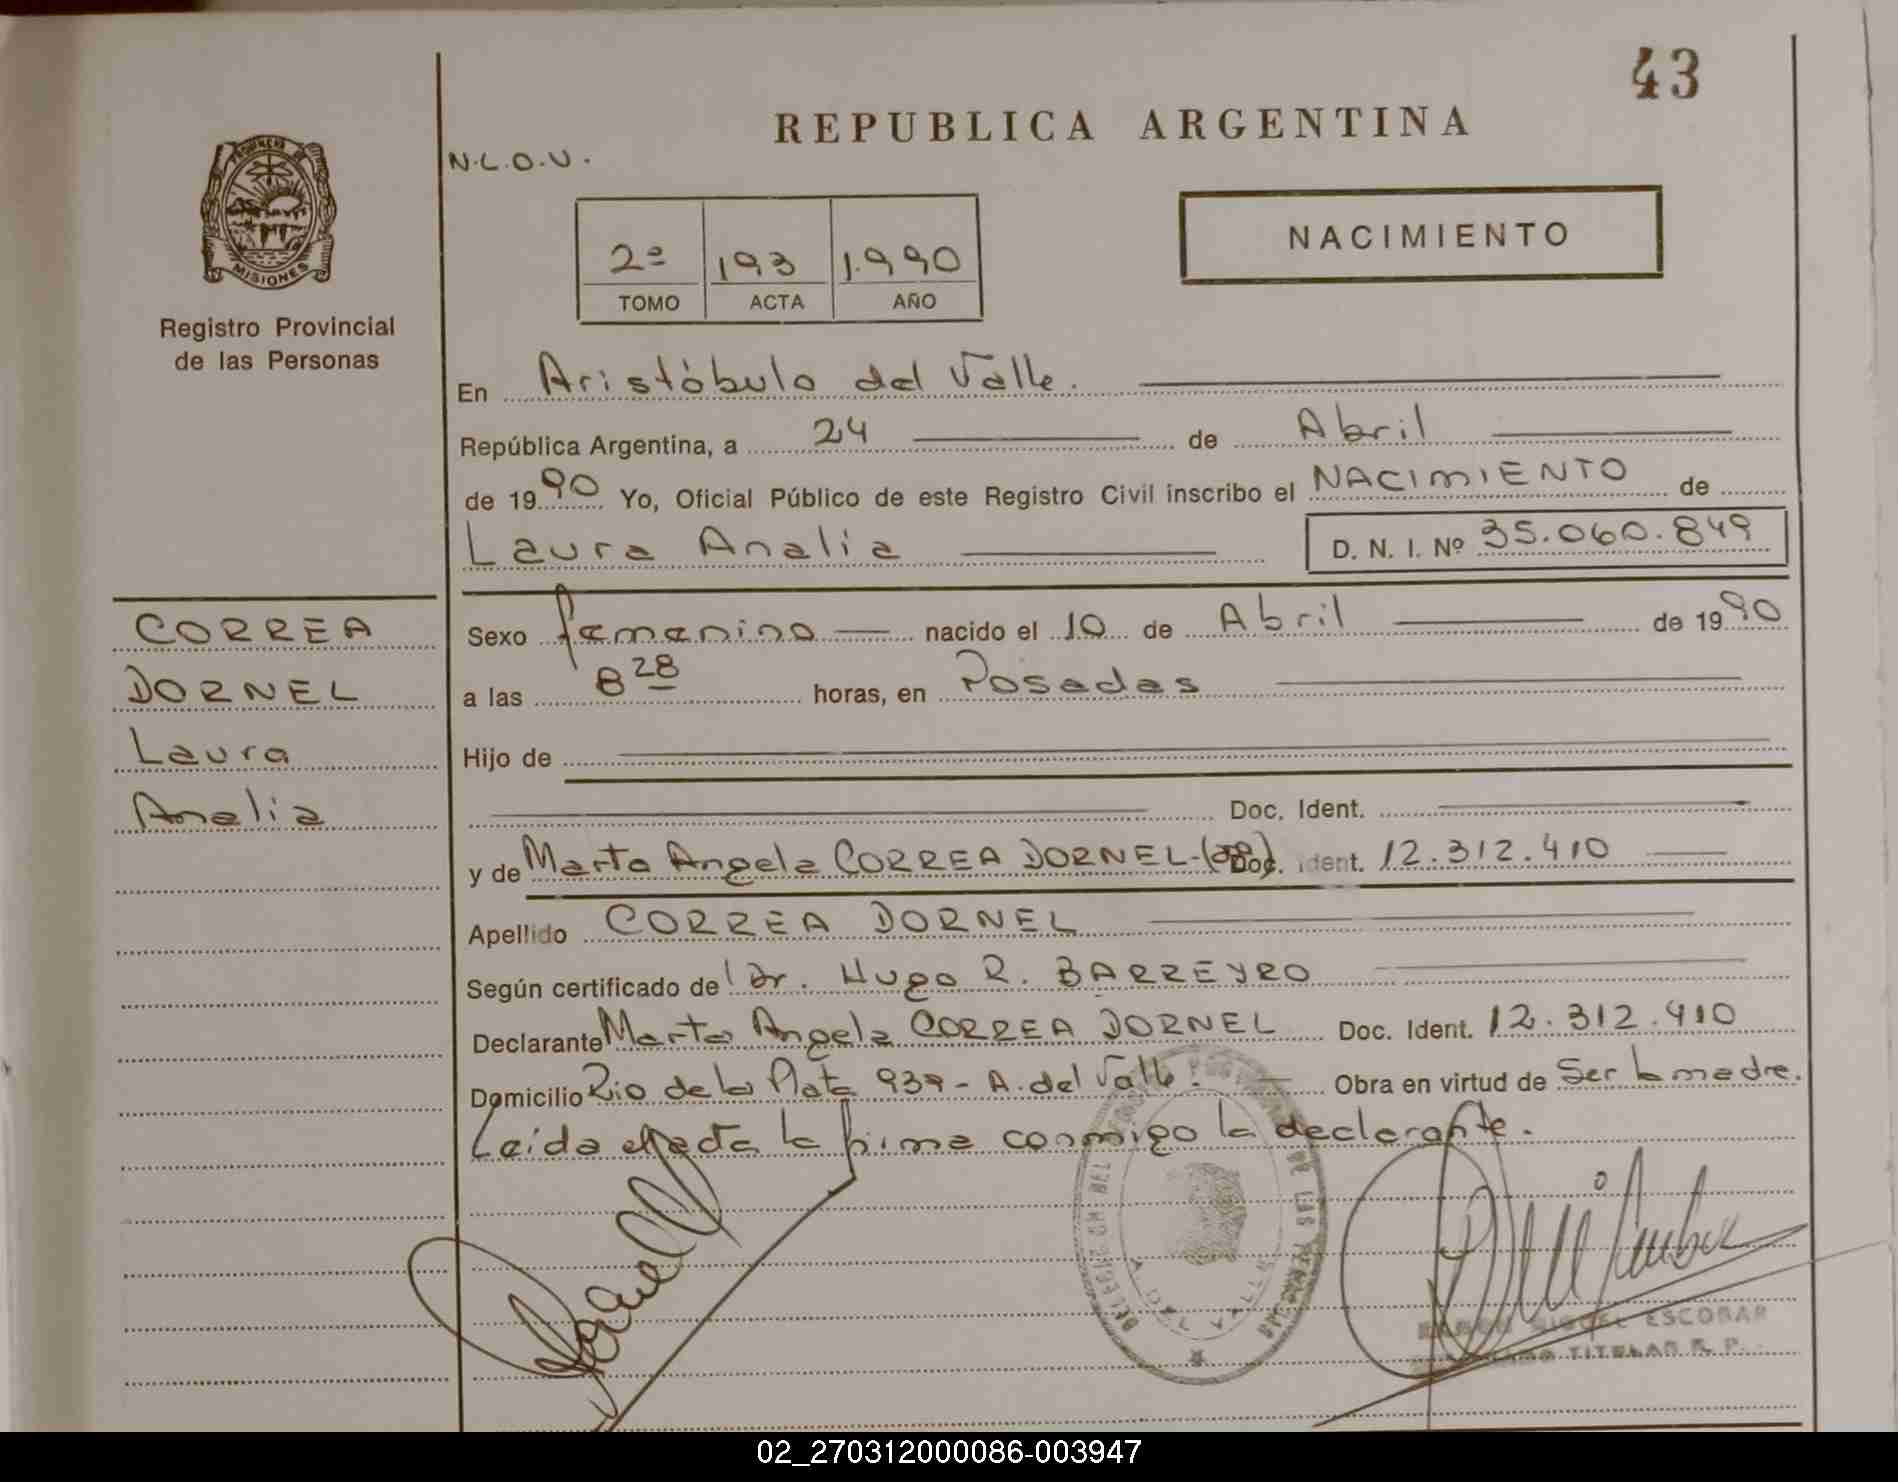 43
REPUBLICA ARGENTINA
N.L.O.U.
PROVINCIA DE
MISIONES
Registro Provincial
de las Personas
2º 193 1.990
TOMO ACTA AÑO
NACIMIENTO
En Aristóbulo del Valle.
República Argentina, a 24 de Abril
de 1990 Yo, Oficial Público de este Registro Civil inscribo el NACIMIENTO de
Laura Analia D. N. I. Nº 35.060.849
CORREA
DORNEL
Laura
Analia
Sexo femenino nacido el 10 de Abril de 1990
a las 8 28 horas, en Posadas
Hijo de
Doc. Ident.
y de Marta Angela CORREA DORNEL- Doc. Ident. 12.312.410
Apellido CORREA DORNEL
Según certificado de Dr. Hugo R. BARREYRO
Declarante Marta Angela CORREA DORNEL Doc. Ident. 12.312.410
Domicilio Rio de la Plata 939 - A. del Valle. Obra en virtud de Ser la madre.
Leida efecta la firma conmigo la declarante.
DE LAS PERSONAS
MIGUEL ESCOBAR
TITULAR R. P.
02_270312000086-003947